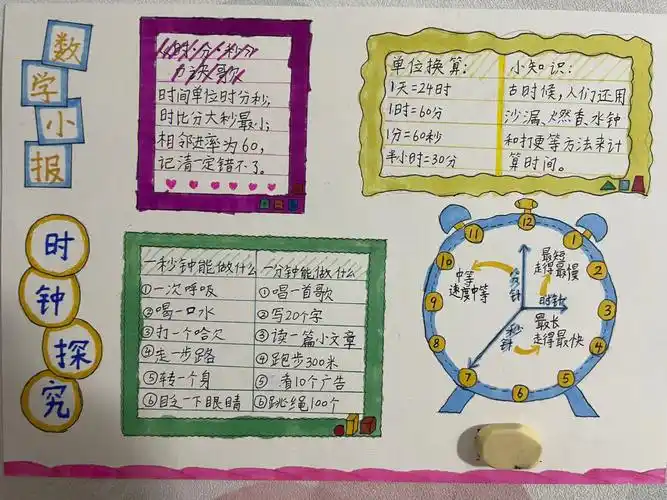 数学小报
时钟探究
时·分·秒
口诀歌
时间单位时分秒;
时比分大秒最小;
相邻进率为60,
记清一定错不了。
单位换算:
1天=24时
1时=60分
1分=60秒
半小时=30分
小知识:
古时候,人们还用
沙漏、燃香、水钟
和打更等方法来计
算时间。
一秒钟能做什么
①一次呼吸
②喝一口水
③打一个哈欠
④走一步路
⑤转一个身
⑥眨一下眼睛
一分钟能做什么
①唱一首歌
②写20个字
③读一篇小文章
④跑步300米
⑤看10个广告
⑥跳绳100个
12
1
2
3
4
5
6
7
8
9
10
11
最短
走得最慢
中等
速度中等
分针
时针
秒针
最长
走得最快